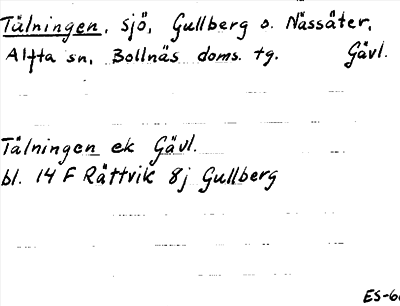 Tälningen, sjö, Gullberg o. Nässäter,
Alfta sn, Bollnäs doms. tg. Gävl.
Tälningen ek Gävl.
bl. 14 F Rättvik 8j Gullberg